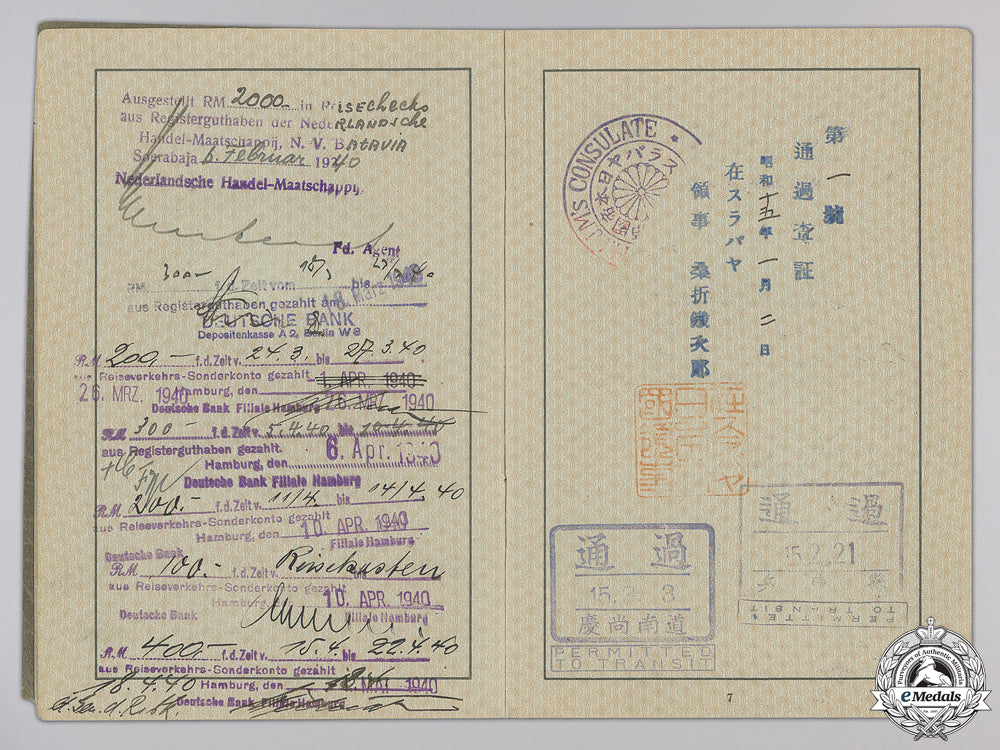 Ausgestellt RM. 2000.- in Reisechecks
aus Registerguthaben der Nederlandsche
Handel-Maatschappij, N. V. Batavia
Soerabaja 6. Februar 1940
Nederlandsche Handel-Maatschappij,
Fd. Agent
RM. 300.- f.d. Zeit vom bis
aus Registerguthaben gezahlt am
DEUTSCHE BANK
Depositenkasse A 2, Berlin W 8
RM 200.- f.d. Zeit v. 24.3. bis 27.3.40
aus Reiseverkehrs-Sonderkonto gezahlt 1. APR. 1940
26. MRZ. 1940 Hamburg, den 26. MRZ. 1940
Deutsche Bank Filiale Hamburg
RM 300.- f.d. Zeit v. 5.4.40 bis
aus Registerguthaben gezahlt.
Hamburg, den 6. Apr. 1940
Deutsche Bank Filiale Hamburg
RM 200.- f.d. Zeit v. 11/4. bis 14/4 40
aus Reiseverkehrs-Sonderkonto gezahlt
Hamburg, den 10. APR. 1940
Deutsche Bank Filiale Hamburg
RM 100.- f.d. Zeit v. Reisekosten
aus Reiseverkehrs-Sonderkonto gezahlt
Hamburg 10. APR. 1940
Deutsche Bank Filiale Hamburg
RM 400.- f.d. Zeit v. 15.4. bis 22.4.40
aus Reiseverkehrs-Sonderkonto gezahlt
18.4.40 Hamburg, den MAI 1940
Deutsche Bank Filiale Hamburg
第一號
通過査証
昭和十五年一月二日
在スラバヤ
領事 桑折鐵次郎
CONSULATE
スラバヤ日本帝國
通過
15.2.21
PERMITTED
TO TRANSIT
通過
15. 2. 3
慶尚南道
PERMITTED
TO TRANSIT
7
Purveyors of Authentic Militaria
eMedals